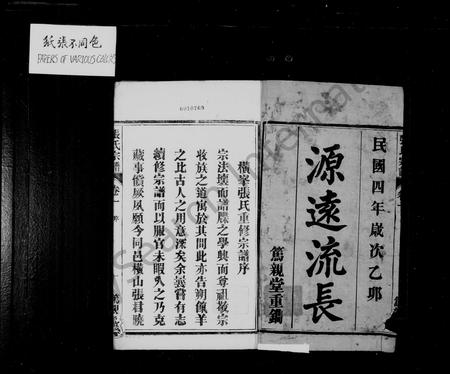 紙張不同色
PAPERS OF VARIOUS COLORS
民國四年歲次乙卯
源遠流長
篤親堂重鐫
橫峯張氏重修宗譜序
宗法壞而譜牒之學興而尊祖敬宗
收族之道寓於其間此亦告朔餼羊
之此古人之用意深矣余曩嘗有志
續修宗譜而以服官未暇久之乃克
蕆事償厥夙願今同邑橫山張君曉
張氏宗譜
卷一
序
篤親堂